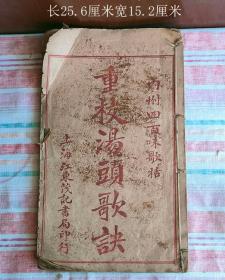 长25.6厘米宽15.2厘米
內附四百味歌括
重校湯頭歌訣
上海江東茂記書局印行